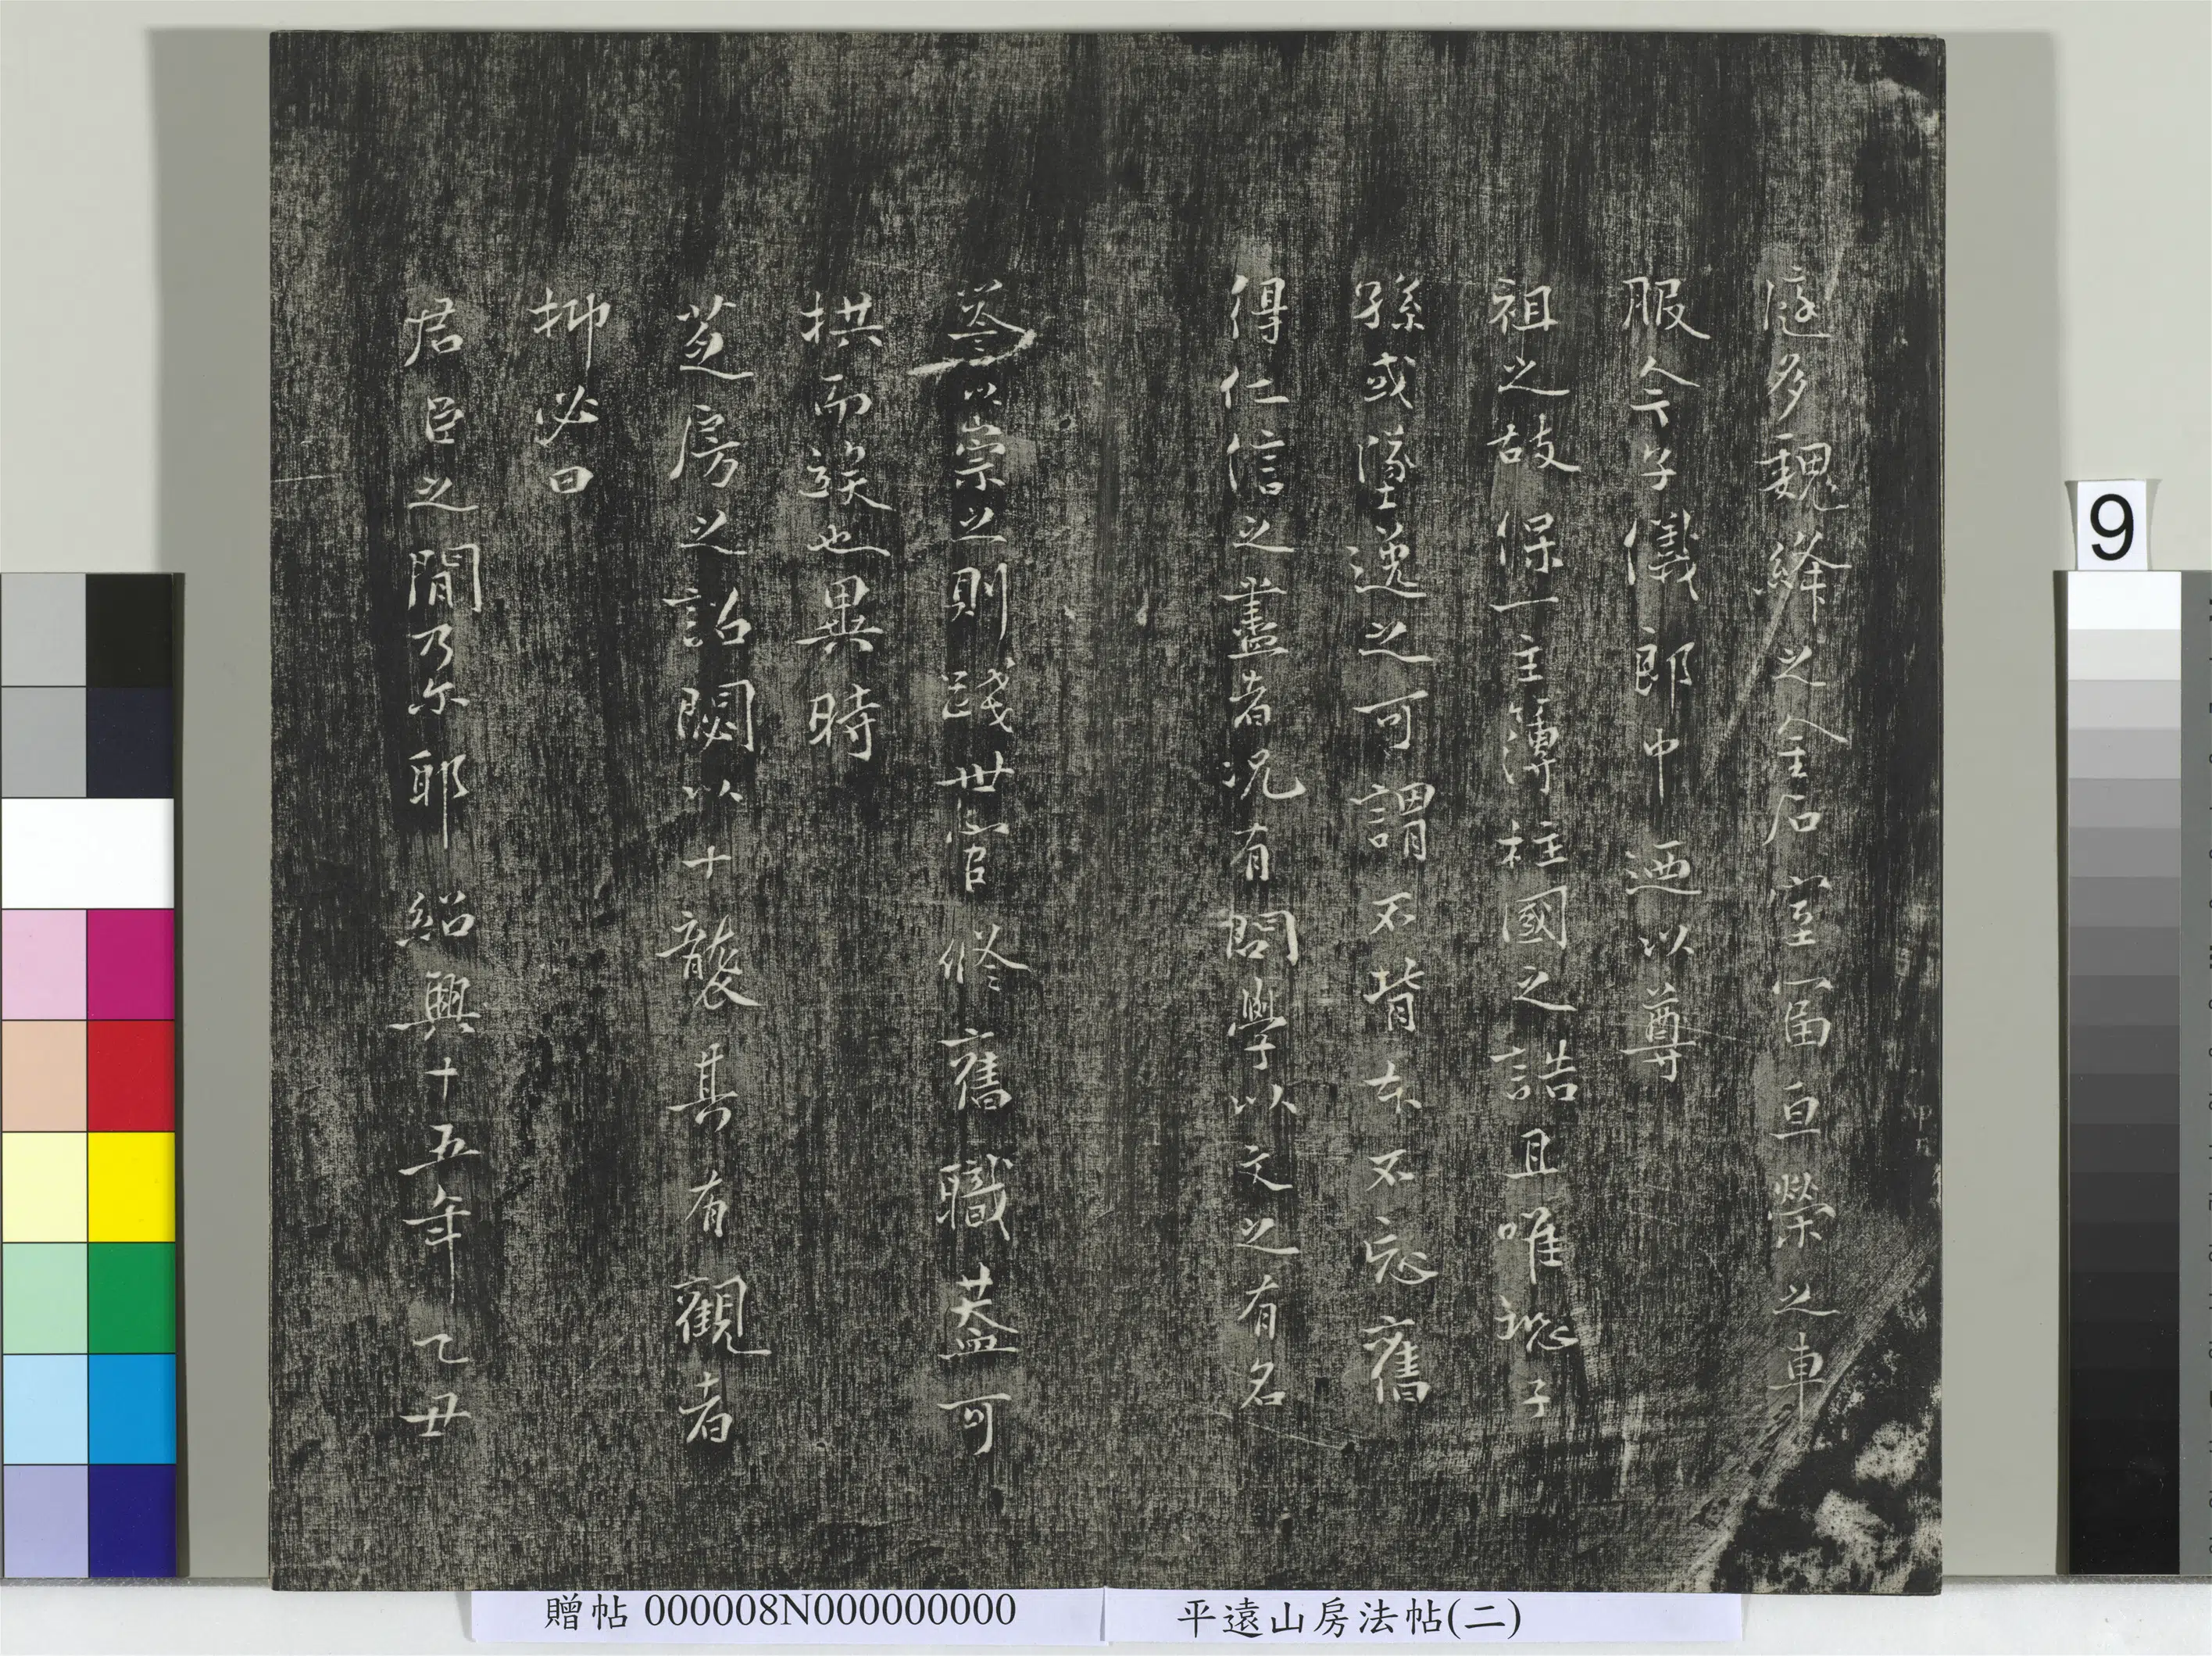 庭多魏絳之金石室富亘榮之車
服今子儀郎中迺以尊
祖之故保一主簿柱國之誥且唯恐子
孫或墜逸之可謂不背本不忘舊
得仁信之盡者况有問學以文之有名
以崇之則踐世官修舊職盖可
拱而俟也異時
芝房之詔闕以十襲其有觀者
抑必曰
君臣之間乃尓耶紹興十五年乙丑
9
贈帖 000008N000000000
平遠山房法帖(二)